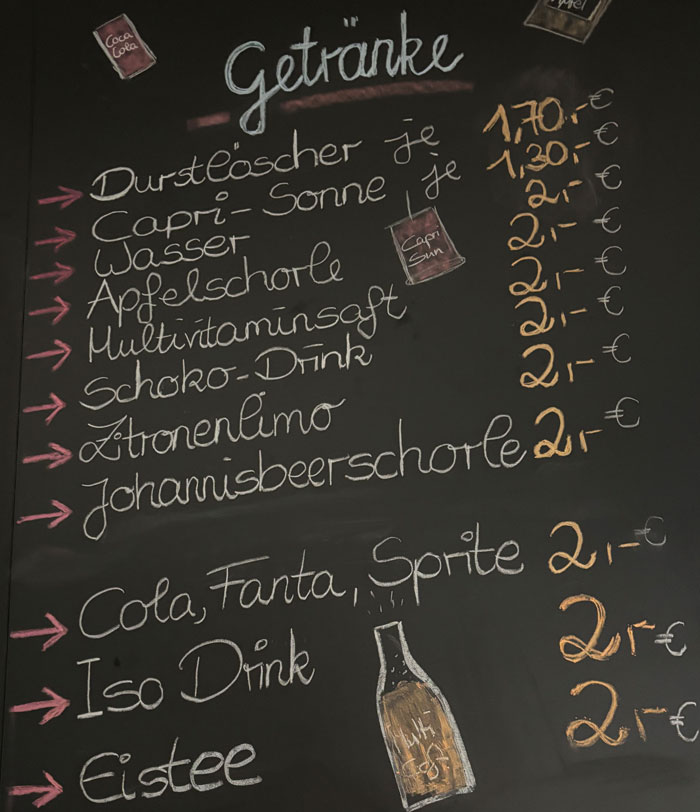 Coca
Cola
Getränke
Durstlöscher je 1,70.-€
Capri-Sonne je 1,30.-€
Wasser 2,-€
Apfelschorle 2,-€
Capri
Sun
Multivitaminsaft 2,-€
Schoko-Drink 2,-€
Zitronenlimo 2,-€
Johannisbeerschorle 2,-€
Cola, Fanta, Sprite 2,-€
Iso Drink 2,-€
Multi
Saft
Eistee 2,-€